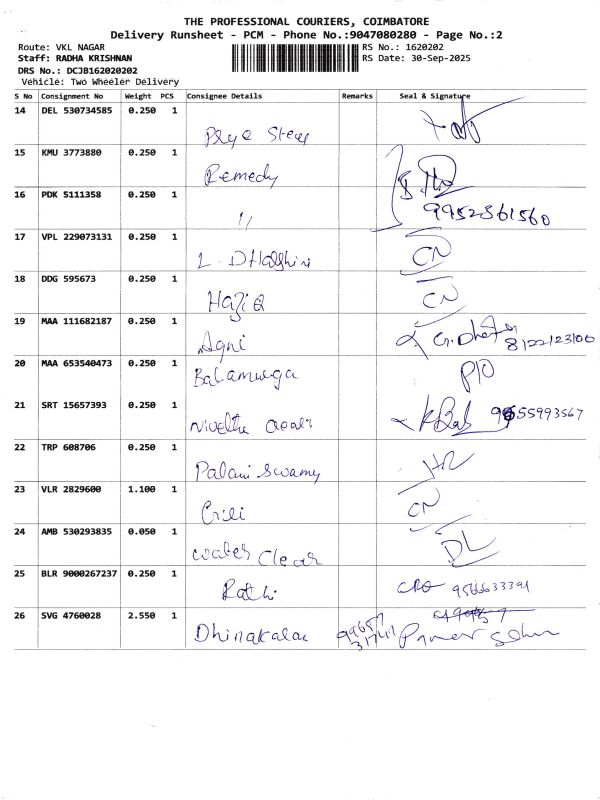 THE PROFESSIONAL COURIERS, COIMBATORE
Delivery Runsheet - PCM - Phone No.:9047080280 - Page No.:2
Route: VKL NAGAR RS No.: 1620202
Staff: RADHA KRISHNAN RS Date: 30-Sep-2025
DRS No.: DCJB162020202
Vehicle: Two Wheeler Delivery
S No Consignment No Weight PCS Consignee Details Remarks Seal & Signature
14 DEL 530734585 0.250 1
15 KMU 3773880 0.250 1
Remedy
16 PDK 5111358 0.250 1
11 9952861560
17 VPL 229073131 0.250 1
L. CN
18 DDG 595673 0.250 1
CN
19 MAA 111682187 0.250 1
Agni 8122123100
20 MAA 653540473 0.250 1
Balamuruga P/O
21 SRT 15657393 0.250 1
22 TRP 608706 0.250 1
Palani Swamy
23 VLR 2829600 1.100 1
CN
24 AMB 530293835 0.050 1
Water Clear DL
25 BLR 9000267237 0.250 1
Rathi 9566633391
26 SVG 4760028 2.550 1
Dhinakalan